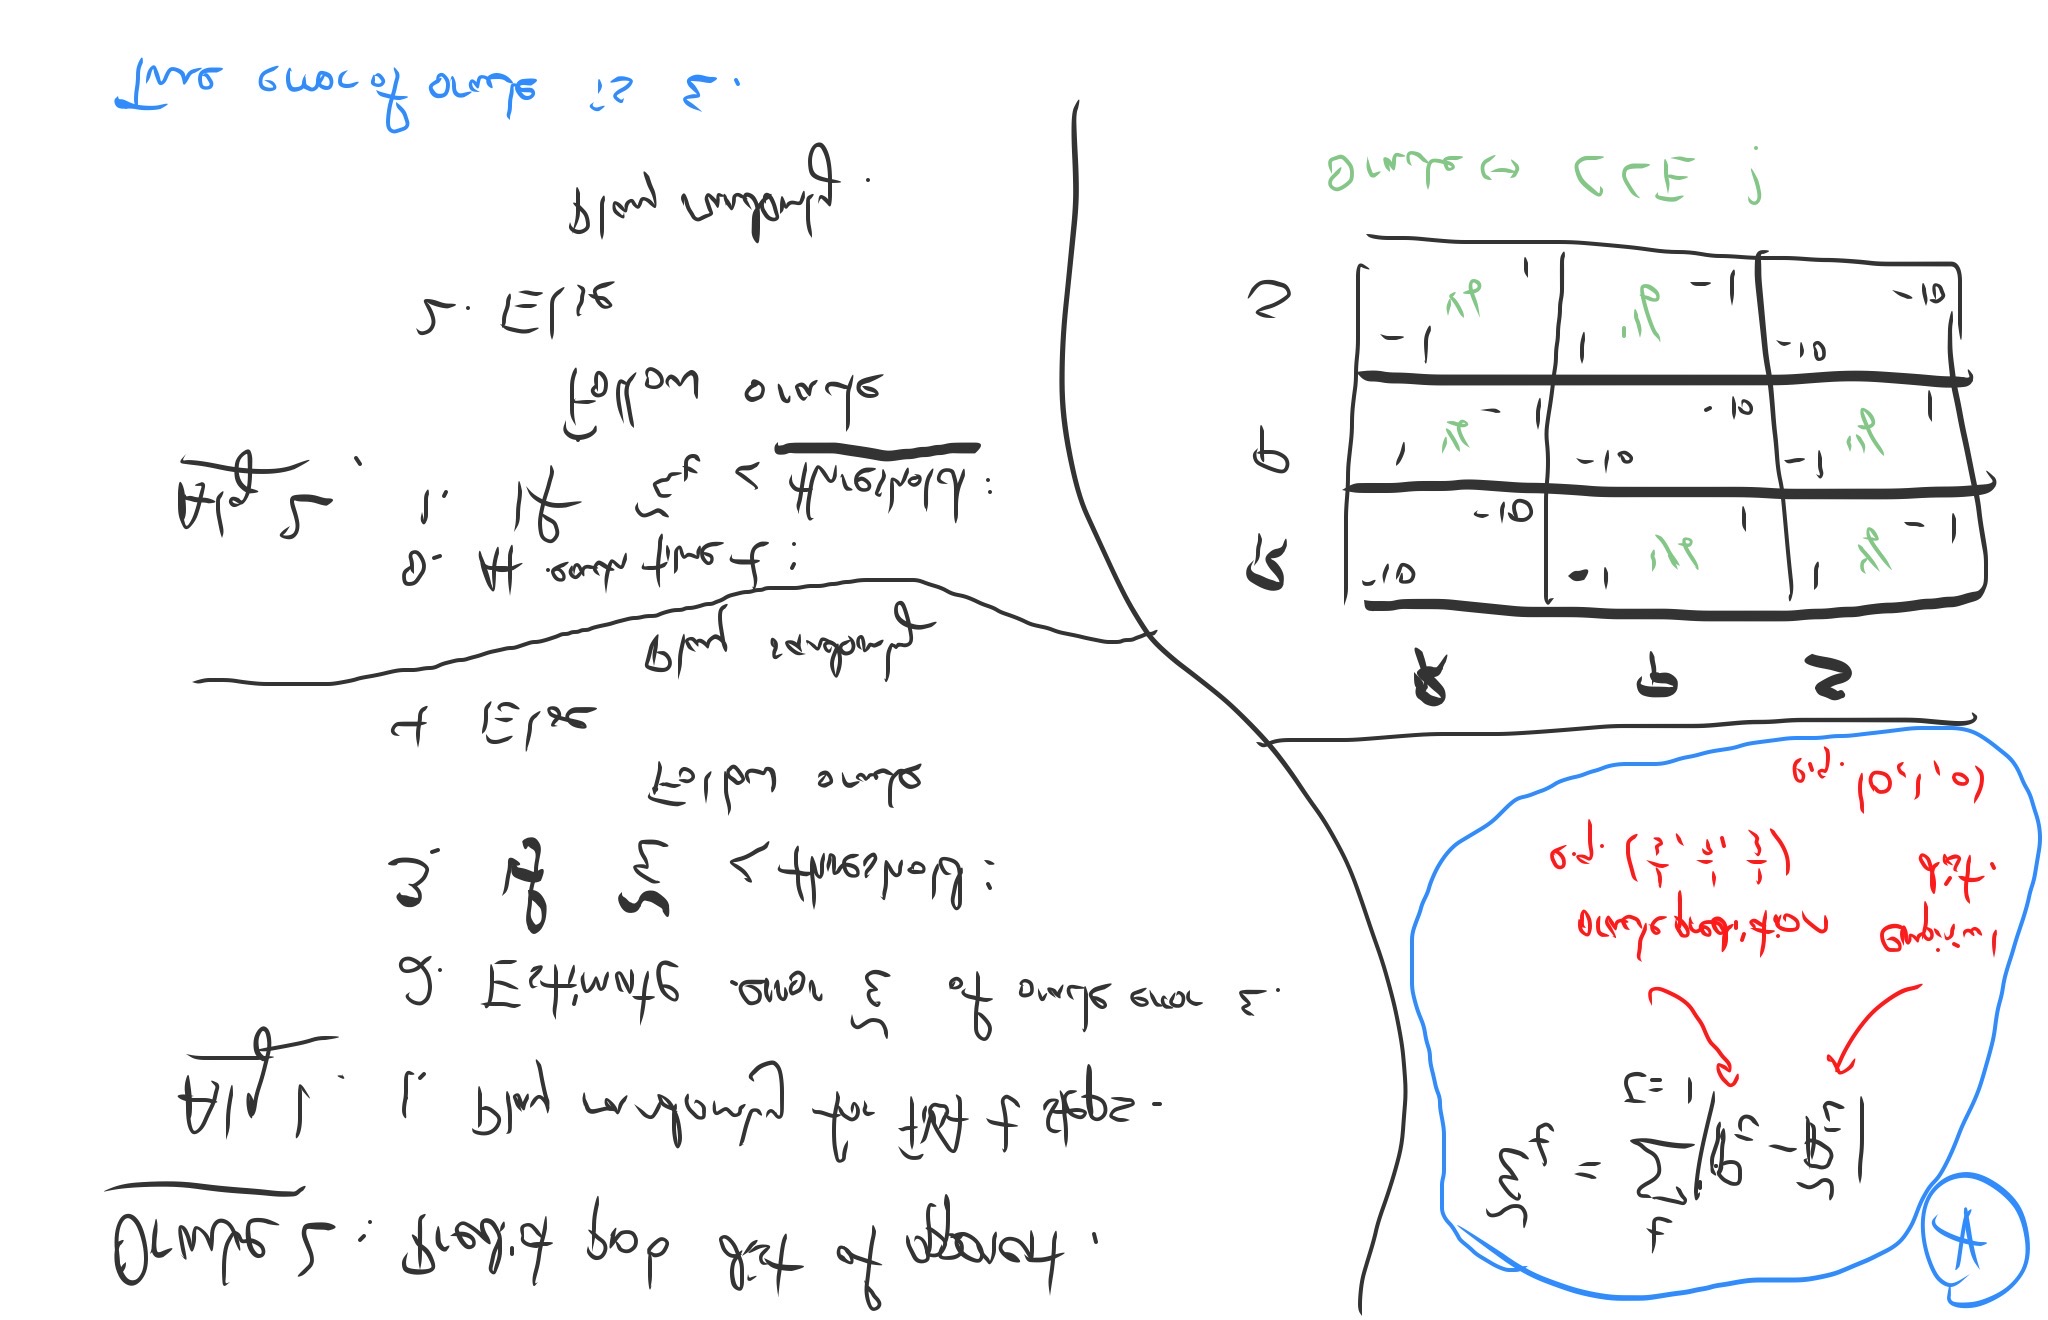 Oracle 2 : Predict prob dist of opponent.
Alg 1. 1. Play randomly for first t steps.
2. Estimate error ε̃ of oracle error ε.
3. If ε̃ < threshold:
Follow oracle
4 Else
Play randomly
Alg 2. 0. At each time t:
1. If ε̃_t < threshold:
Follow oracle
2. Else
Play randomly.
True error of oracle is ε.
ε̃_t = Σ_{τ=1}^{t} |P_τ - P̃_τ|
oracle prediction
e.g. (1/3, 1/3, 1/3)
empirical
dist.
e.g. (0, 1, 0)
R P S
R -10 -10 -1 1/6 1 1 1/6 -1
P 1 1/6 -1 -10 -10 -1 1/6 1
S -1 1/6 1 1 1/6 -1 -10 -10
Oracle ↔ CCE ?